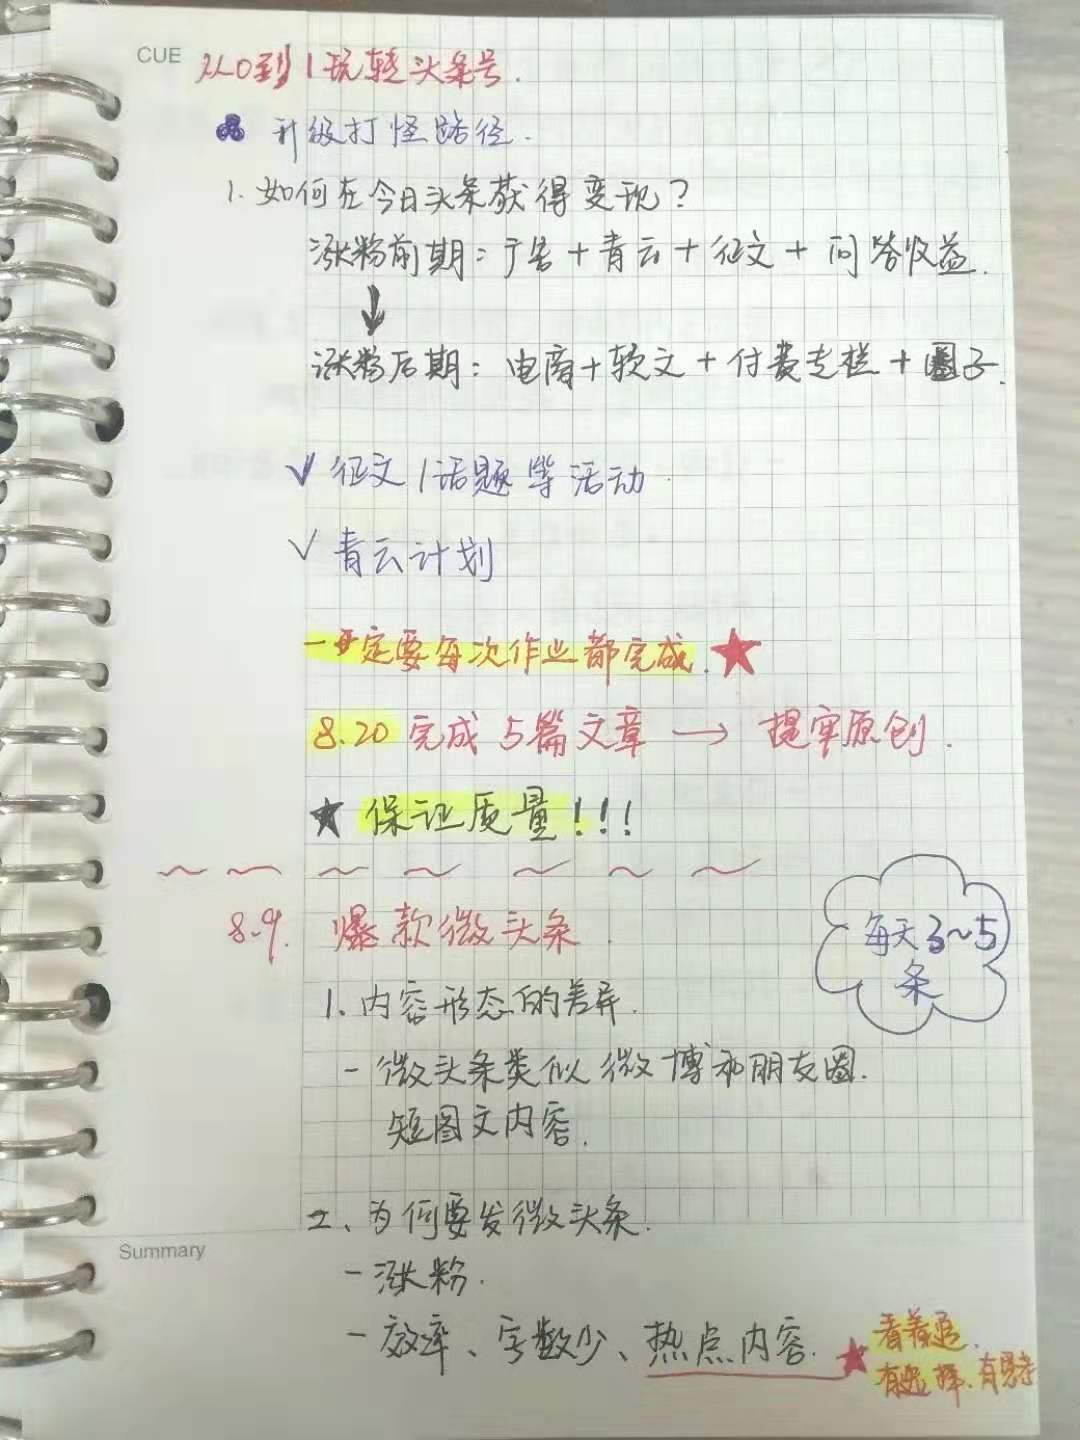 CUE 从0到1玩转头条号.
升级打怪路径.
1.如何在今日头条获得变现?
涨粉前期:广告+青云+征文+问答收益.
涨粉后期:电商+软文+付费专栏+圈子.
√ 征文/话题等活动
√ 青云计划
一定要每次作业都完成.★
8.20 完成5篇文章→提牢原创.
★保证质量!!!
8.9. 爆款微头条.
每天3~5
条
1、内容形态的差异.
-微头条类似微博和朋友圈.
短图文内容.
2、为何要发微头条.
Summary
-涨粉.
-效率、字数少、热点内容.★
看着追.
有选择.有思考